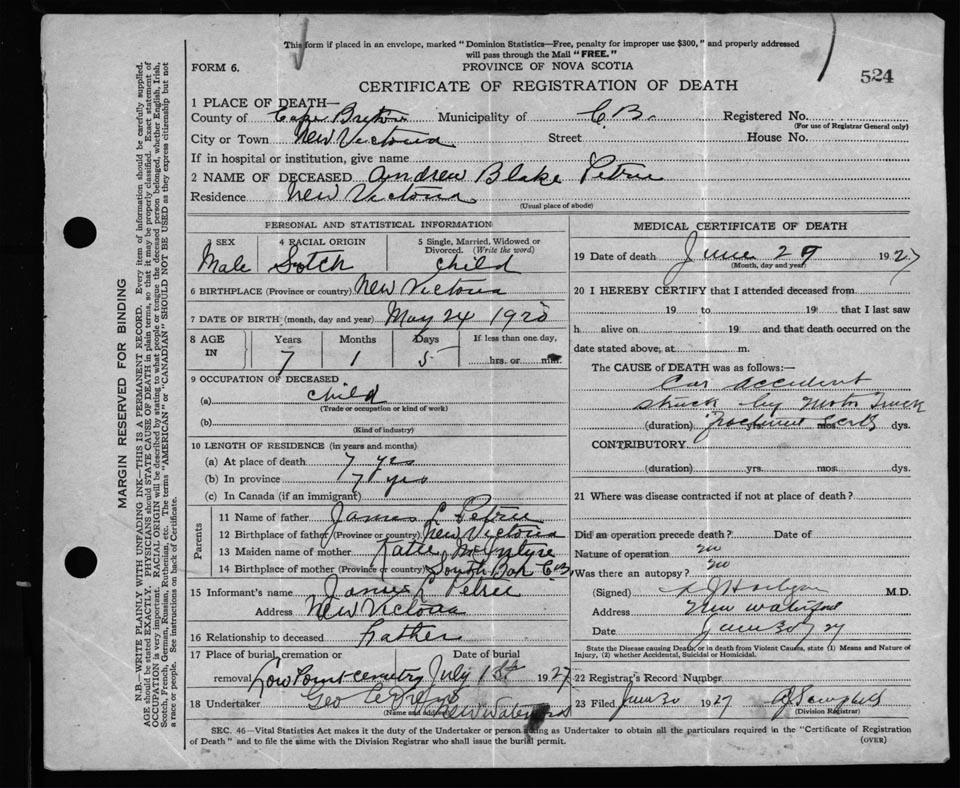 This form if placed in an envelope, marked "Dominion Statistics—Free, penalty for improper use $300," and properly addressed
will pass through the Mail "FREE."
FORM 6.
PROVINCE OF NOVA SCOTIA
524
CERTIFICATE OF REGISTRATION OF DEATH
1 PLACE OF DEATH—
County of Cape Breton Municipality of C.B. Registered No.
(For use of Registrar General only)
City or Town New Victoria Street House No.
If in hospital or institution, give name
2 NAME OF DECEASED Andrew Blake Petrie
Residence New Victoria
(Usual place of abode)
PERSONAL AND STATISTICAL INFORMATION
3 SEX 4 RACIAL ORIGIN 5 Single, Married, Widowed or Divorced. (Write the word)
Male Sotch Child
6 BIRTHPLACE (Province or country) New Victoria
7 DATE OF BIRTH (month, day and year) May 24 1920
8 AGE IN Years Months Days If less than one day,
7 1 5 hrs. or min.
9 OCCUPATION OF DECEASED
(a) child
(Trade or occupation or kind of work)
(b)
(Kind of industry)
10 LENGTH OF RESIDENCE (in years and months)
(a) At place of death 7 yrs
(b) In province 7 yrs
(c) In Canada (if an immigrant)
Parents
11 Name of father James L Petrie
12 Birthplace of father (Province or country) New Victoria
13 Maiden name of mother Katie McIntyre
14 Birthplace of mother (Province or country) South Bar C.B.
15 Informant's name James L Petrie
Address New Victoria
16 Relationship to deceased Father
17 Place of burial, cremation or Date of burial
removal Low Point Cemetry July 1st 1927
18 Undertaker Geo
(Name and address) New Waterford
MEDICAL CERTIFICATE OF DEATH
19 Date of death June 29 1927
(Month, day and year)
20 I HEREBY CERTIFY that I attended deceased from
19 to 19 that I last saw
h alive on 19 and that death occurred on the
date stated above, at m.
The CAUSE OF DEATH was as follows:—
Car accident
struck by Motor Truck
(duration) Fractured yrs. mos. dys.
CONTRIBUTORY
(duration) yrs. mos. dys.
21 Where was disease contracted if not at place of death?
Did an operation precede death? Date of
Nature of operation no
Was there an autopsy? no
(Signed) M.D.
Address New Waterford
Date June 30 / 27
State the Disease causing Death, or in death from Violent Causes, state (1) Means and Nature of
Injury, (2) whether Accidental, Suicidal or Homicidal.
22 Registrar's Record Number
23 Filed June 30 1927 Campbell
(Division Registrar)
SEC. 46—Vital Statistics Act makes it the duty of the Undertaker or person acting as Undertaker to obtain all the particulars required in the "Certificate of Registration
of Death" and to file the same with the Division Registrar who shall issue the burial permit.
(OVER)
MARGIN RESERVED FOR BINDING
N.B.—WRITE PLAINLY WITH UNFADING INK—THIS IS A PERMANENT RECORD. Every item of information should be carefully supplied.
AGE should be stated EXACTLY. PHYSICIANS should STATE CAUSE OF DEATH in plain terms, so that it may be properly classified. Exact statement of
OCCUPATION is very important. RACIAL ORIGIN will be described by stating to what people or tongue the deceased person belonged, whether English, Irish,
Scotch, French, German, Russian, Ruthenian, etc. The terms "AMERICAN" or "CANADIAN" SHOULD NOT BE USED as they express citizenship but not
a race or people. See instructions on back of Certificate.